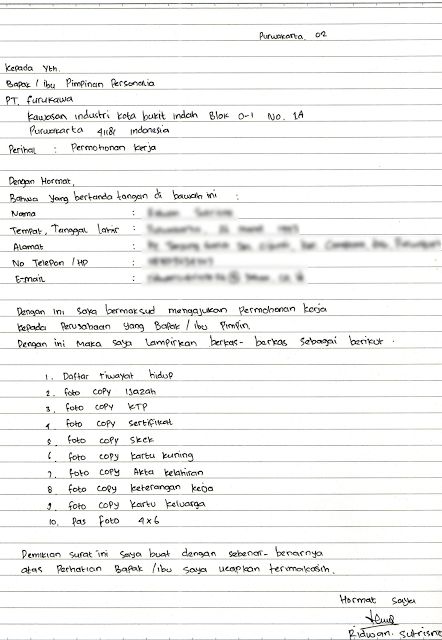 Purwakarta, 02
Kepada Yth.
Bapak / Ibu Pimpinan Personalia
PT. Furukawa
Kawasan industri kota bukit indah Blok D-1 No. 1A
Purwakarta 41181 Indonesia
Perihal : Permohonan kerja
Dengan Hormat,
Bahwa yang bertanda tangan di bawah ini :
Nama :
Tempat, Tanggal lahir :
Alamat :
No Telepon / HP :
E-mail :
Dengan ini saya bermaksud mengajukan Permohonan kerja
kepada Perusahaan yang Bapak / Ibu Pimpin.
Dengan ini maka saya lampirkan berkas-berkas sebagai berikut :
1. Daftar riwayat hidup
2. foto copy Ijazah
3. foto copy KTP
4. foto copy sertifikat
5. foto copy skck
6. foto copy kartu kuning
7. foto copy Akta kelahiran
8. foto copy keterangan kerja
9. foto copy kartu keluarga
10. Pas foto 4x6
Demikian surat ini saya buat dengan sebenar-benarnya
atas Perhatian Bapak / Ibu saya ucapkan terimakasih.
Hormat saya
Ridwan. Sutrisno